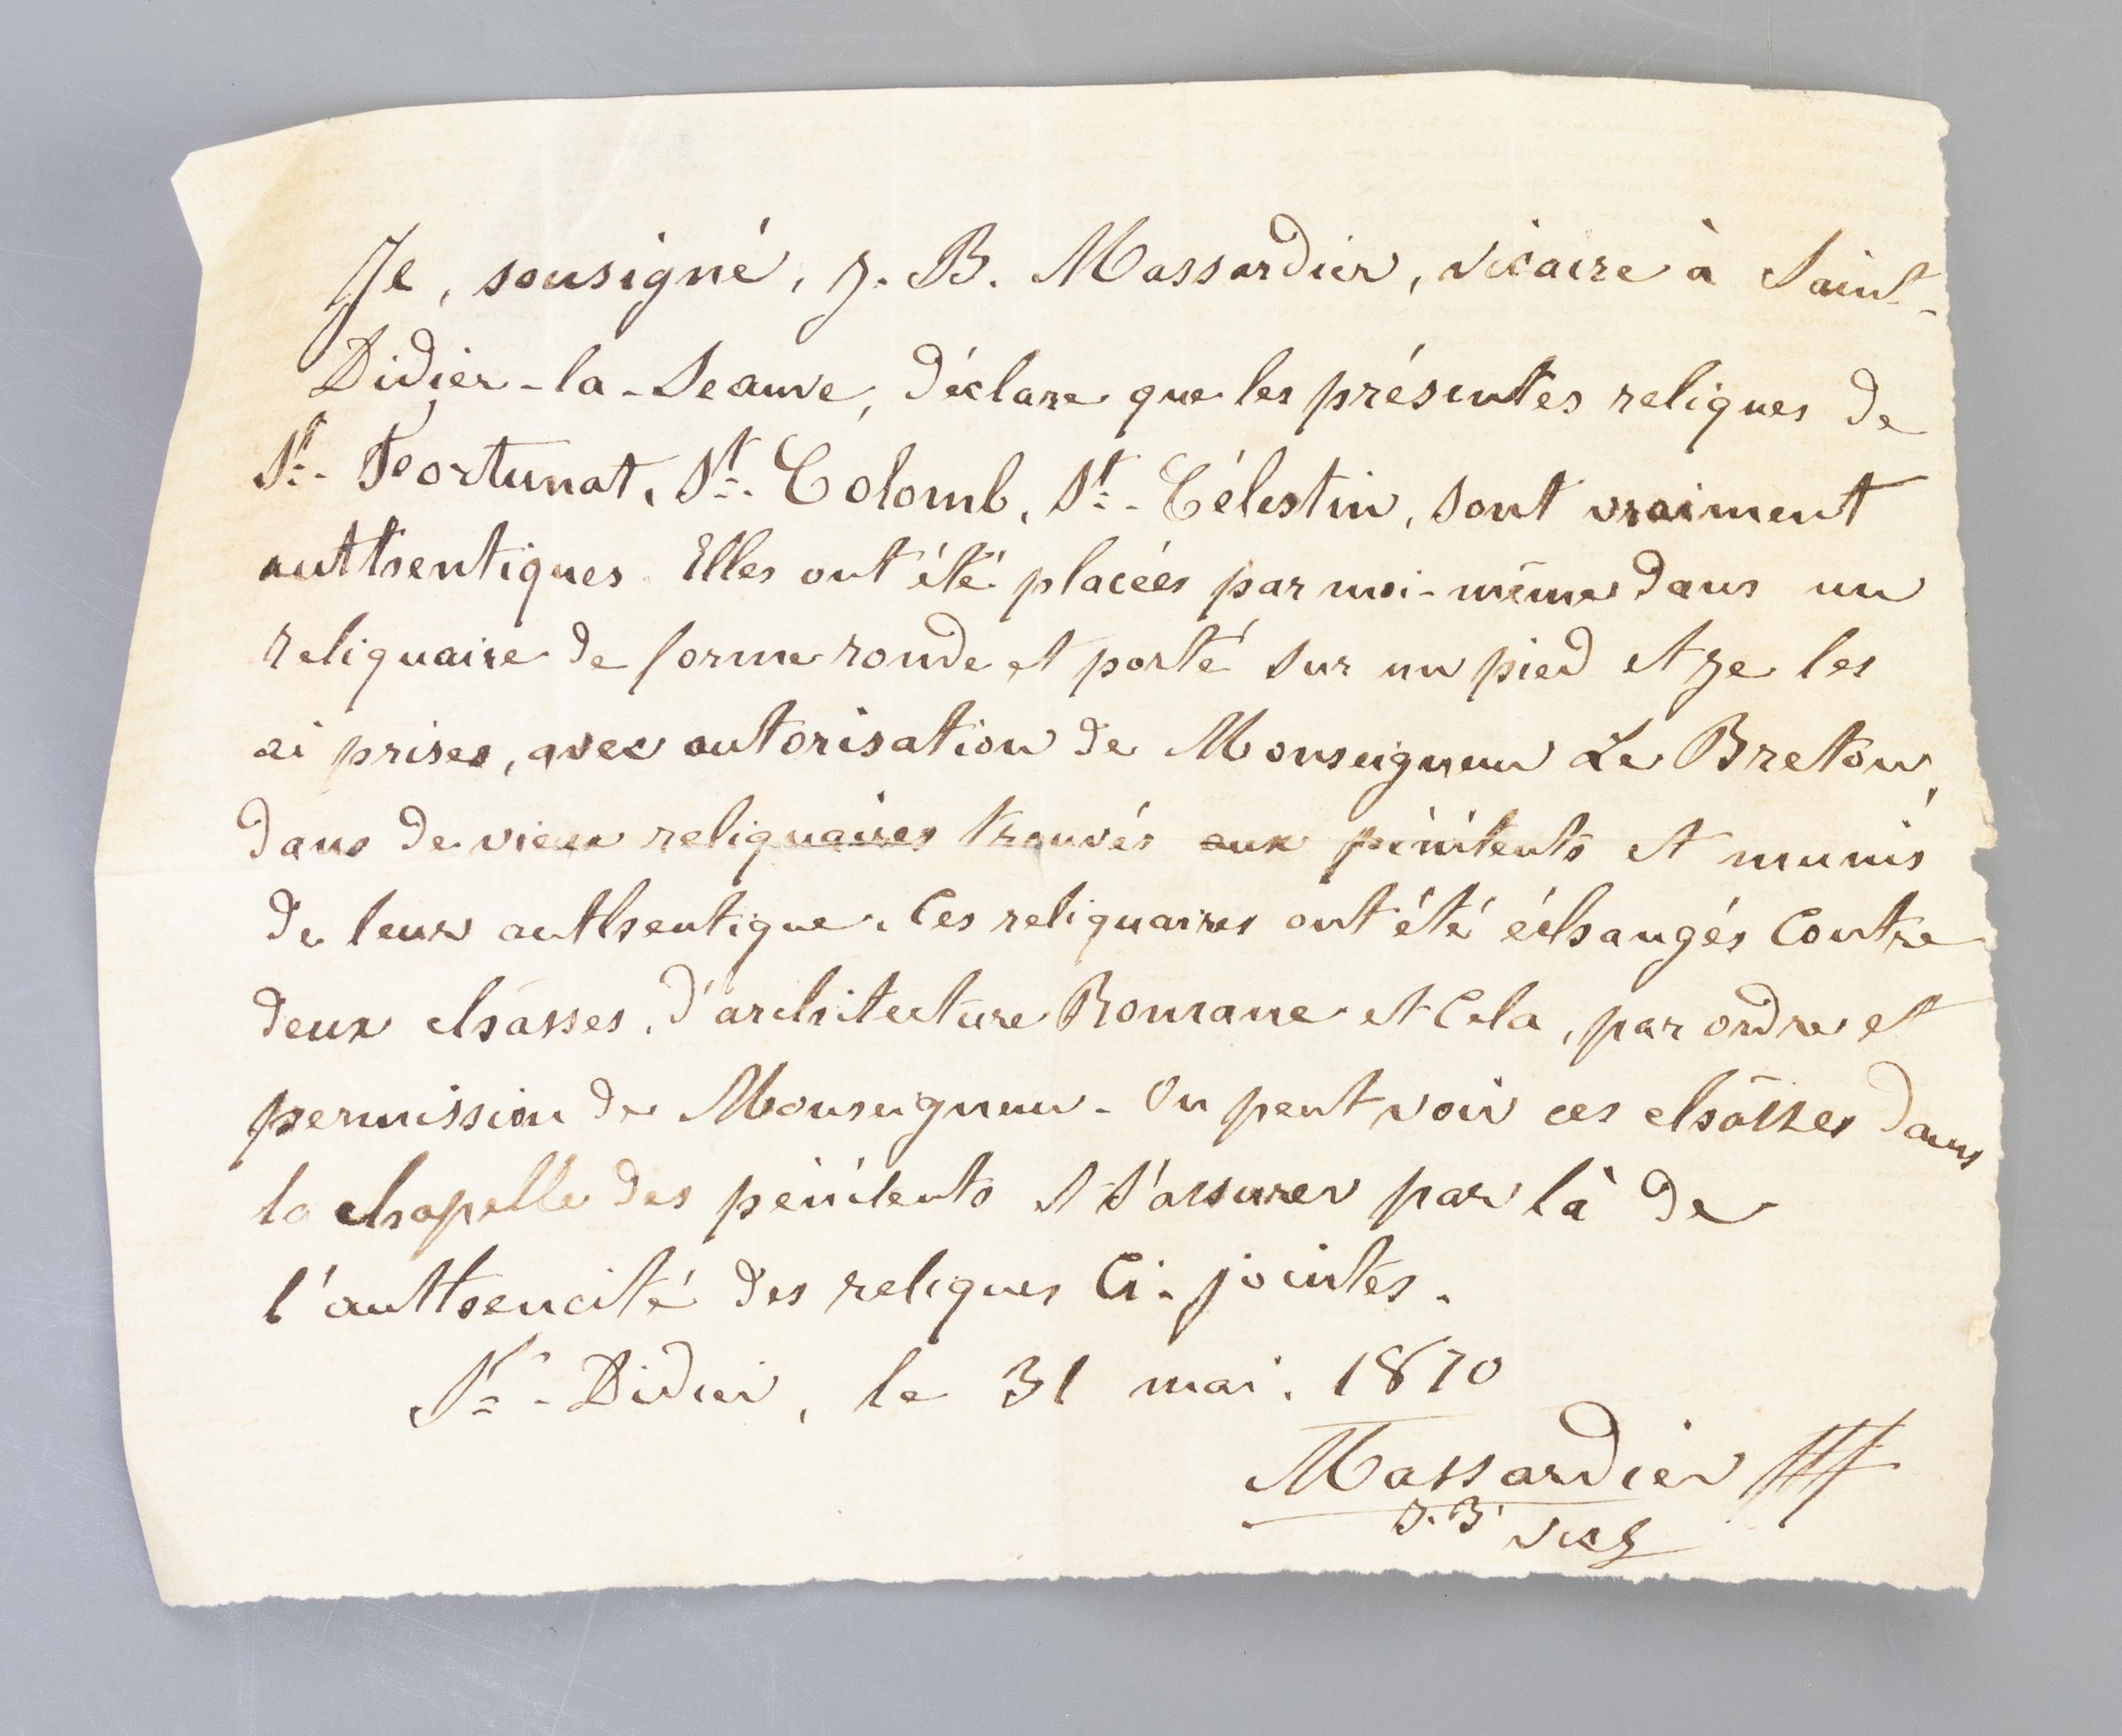 Je, sousigné, J. B. Massardier, vicaire à Saint-
Didier-la-Seauve, déclare que les présentes reliques de
St. Fortunat, St. Colomb, St. Célestin, sont vraiment
authentiques. Elles ont été placées par moi-même dans un
reliquaire de forme ronde et porté sur un pied et je les
ai prises, avec autorisation de Monseigneur Le Breton,
dans de vieux reliquaires trouvés aux pénitents et munis
de leur authentique. Ces reliquaires ont été échangés contre
deux châsses, d'architecture Romane et cela, par ordre et
permission de Monseigneur. On peut voir ces châsses dans
la chapelle des pénitents et s'assurer par là de
l'authencité des reliques ci-jointes.
St. Didier, le 31 mai. 1870
Massardier
J. B. vic